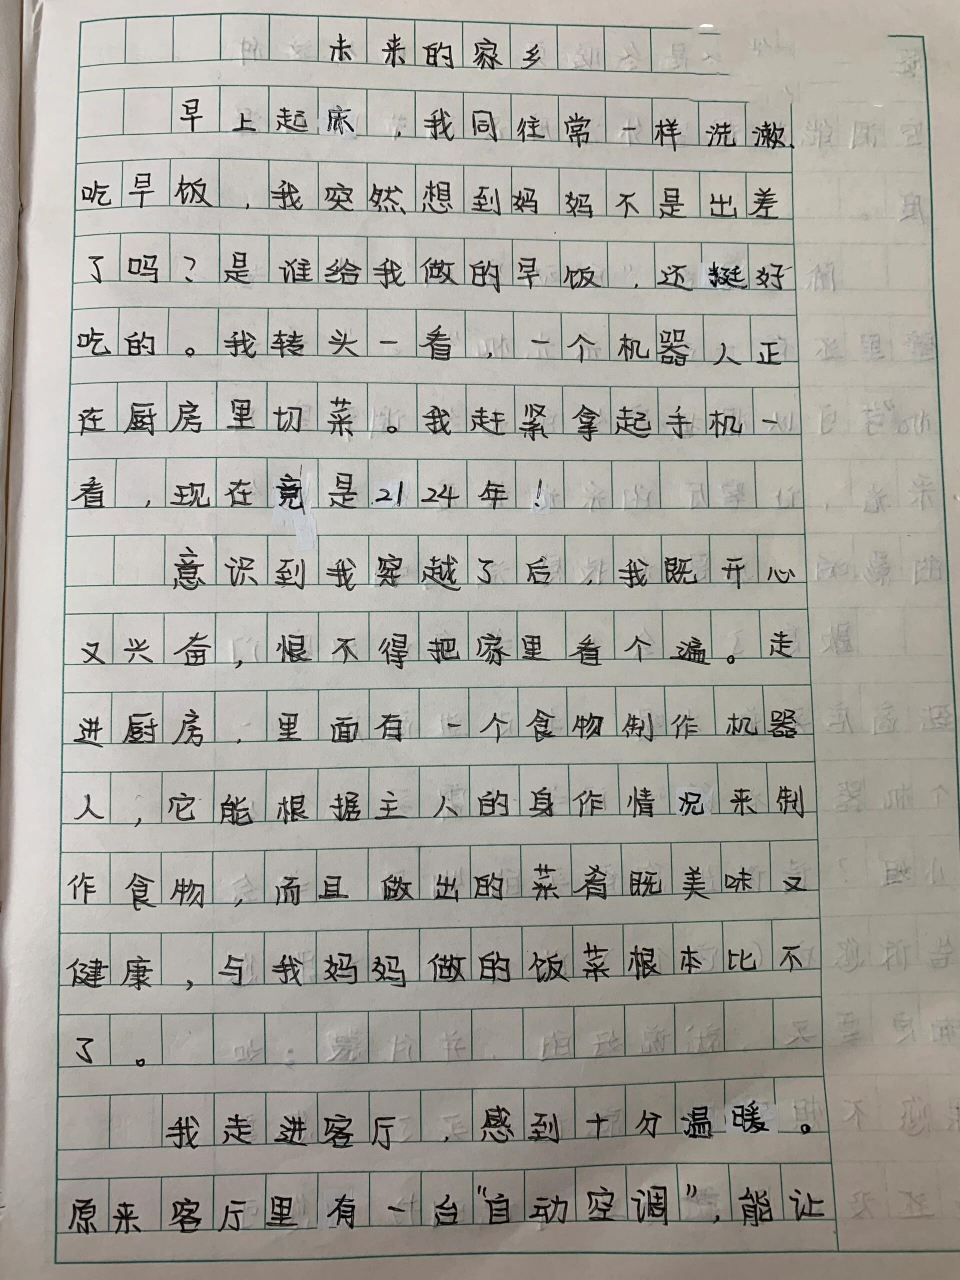 未来的家乡
早上起床，我同往常一样洗漱、
吃早饭，我突然想到妈妈不是出差
了吗？是谁给我做的早饭，还挺好
吃的。我转头一看，一个机器人正
在厨房里切菜。我赶紧拿起手机一
看，现在竟是2124年！
意识到我穿越了后，我既开心
又兴奋，恨不得把家里看个遍。走
进厨房，里面有一个食物制作机器
人，它能根据主人的身作情况来制
作食物，而且做出的菜肴既美味又
健康，与我妈妈做的饭菜根本比不
了。
我走进客厅，感到十分温暖。
原来客厅里有一台“自动空调”，能让